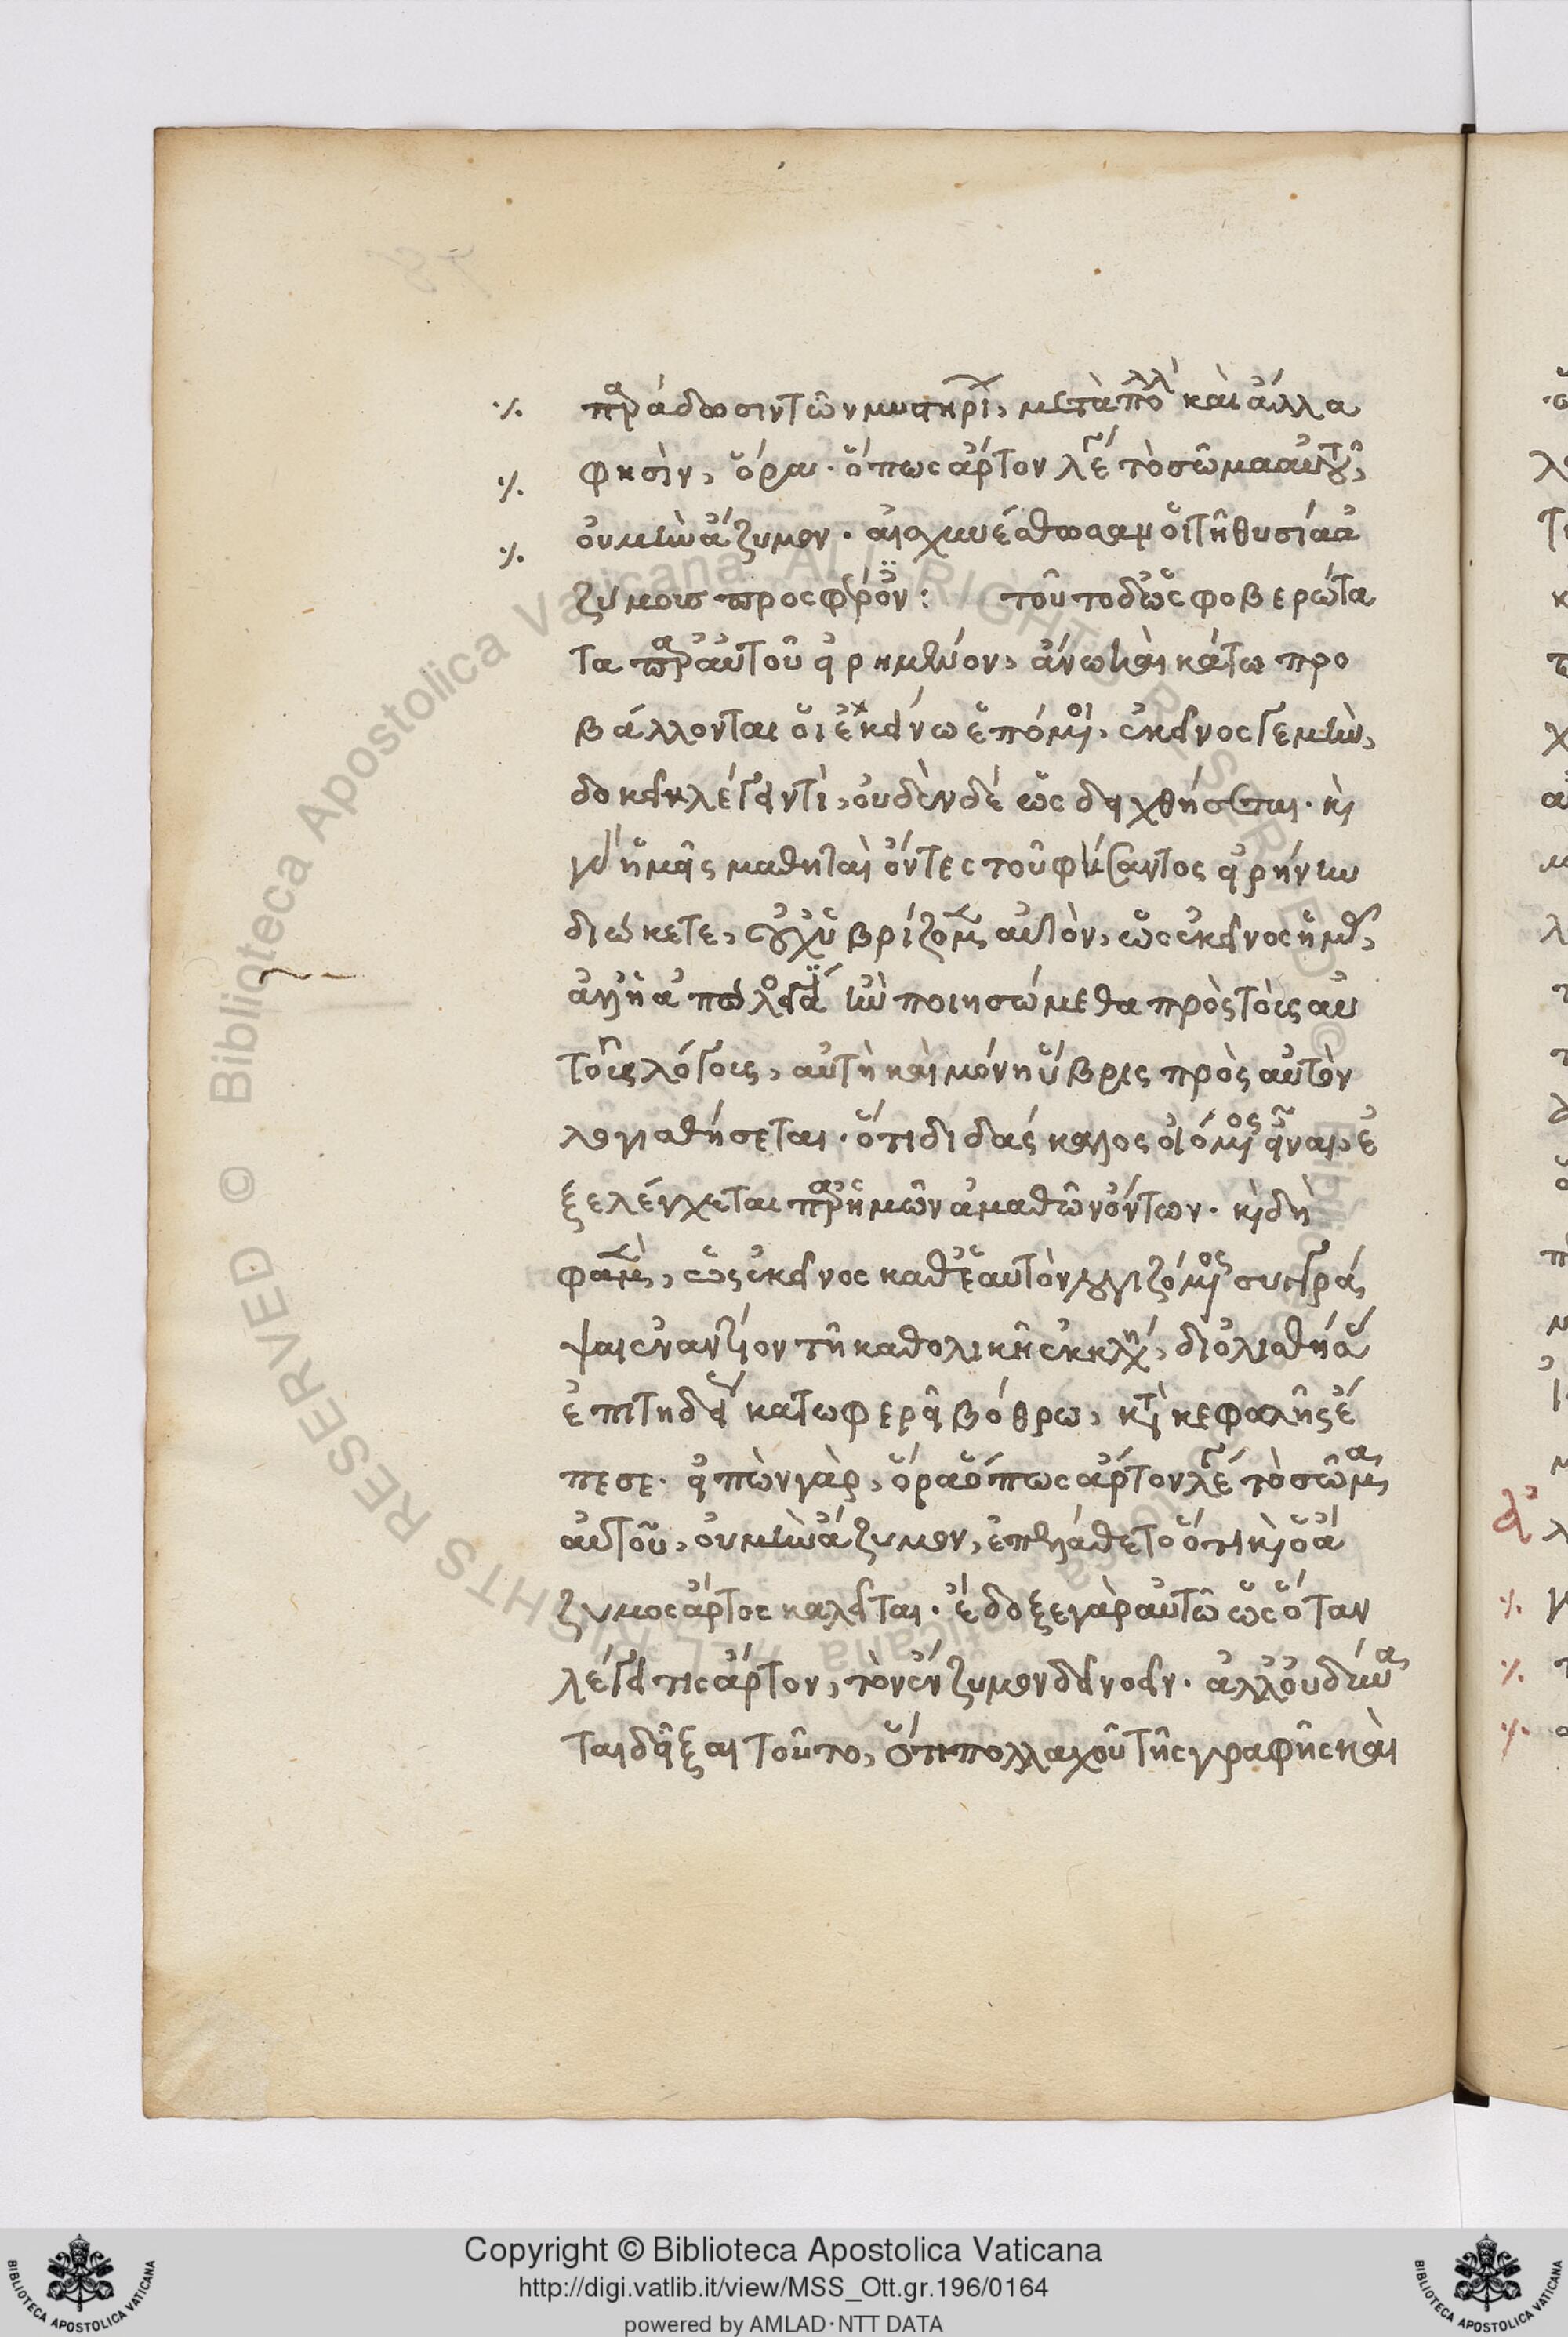 παράδωσιν τῶν μυστηρί, μετὰ πολλὰ καὶ ἄλλα
φησὶν, ὅραι· ὅπως ἄρτον λέγει τὸ σῶμα αὐτοῦ,
οὐ μὴν ἄζυμον· αἰσχυνέσθωσαν οἱ τῆ θυσία ἀ
ζύμοις προσφέρον: τοῦτο δὲ ὡς φοβερώτα
τα παρ' αὐτοῦ εἰρημένον, ἄνω καὶ κάτω προ
βάλλονται οἱ ἐκείνω ἑπόμενοι, ἐκεῖνος γε μὴν,
δοκεῖ λέγειν τὶ, οὐδὲν δέ ὡς δειχθήσεται· καὶ
ἡμᾶς μαθηταὶ ὄντες τοῦ φήσαντος εἰρήνην
διώκετε, οὐχ ὑβρίζομεν αὐτὸν, ὡς ἐκεῖνος ἡμᾶς,
ἀλλ' ἡ ἀπολογία ἣν ποιησώμεθα πρὸς τοὺς αὐ
τοῦ λόγους, αὐτὴ καὶ μόνη ὕβρις πρὸς αὐτὸν
λογισθήσεται· ὅτι διδάσκαλος οἰόμενος εἶναι, ἐ
ξελέγχεται παρ' ἡμῶν ἀμαθῶν ὄντων· καὶ δὴ
φαμὲν, ὡς ἐκεῖνος καθ' ἑαυτὸν λογιζόμενος συγγρά
ψαι ἐναντίον τῆ καθολικῆ ἐκκλησία, διολισθήσας
ἐπιτηδὲς κατωφερεῖ βόθρω, κατὰ κεφαλῆς ἔ
πεσε· εἰπὼν γὰρ, ὅρα ὅπως ἄρτον λέγει τὸ σῶμα
αὐτοῦ, οὐ μὴν ἄζυμον, ἐπελάθετο ὅτι καὶ ὁ ἄ
ζυμος ἄρτος καλεῖται· ἔδοξε γὰρ αὐτῶ ὡς ὅταν
λέγει τις ἄρτον, τὸν ἔνζυμον δεῖ νοεῖν· ἀλλ' οὐ δύνα
ται δεῖξαι τοῦτο, ὅτι πολλαχοῦ τῆς γραφῆς καὶ
Copyright © Biblioteca Apostolica Vaticana
http://digi.vatlib.it/view/MSS_Ott.gr.196/0164
powered by AMLAD·NTT DATA